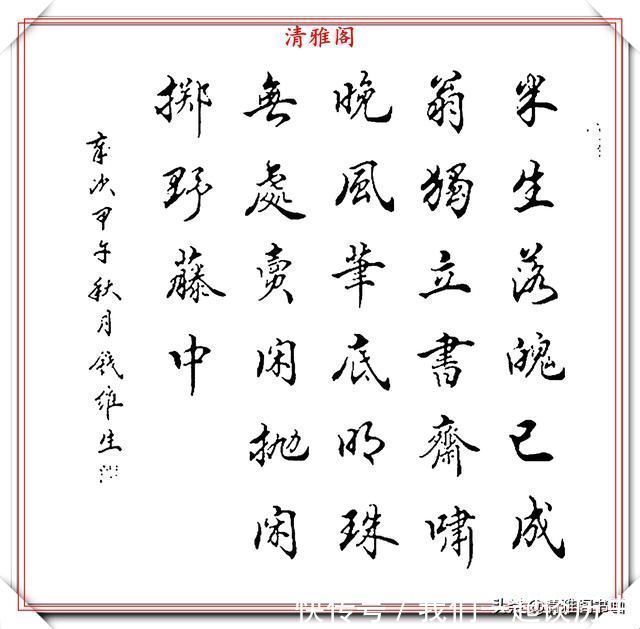 清雅阁
半生落魄已成
翁獨立書齋嘯
晚風筆底明珠
無處賣闲抛闲
擲野藤中
歲次甲午秋月錢維生
头条@清雅阁书画
快传号 / 我们一起谈历史